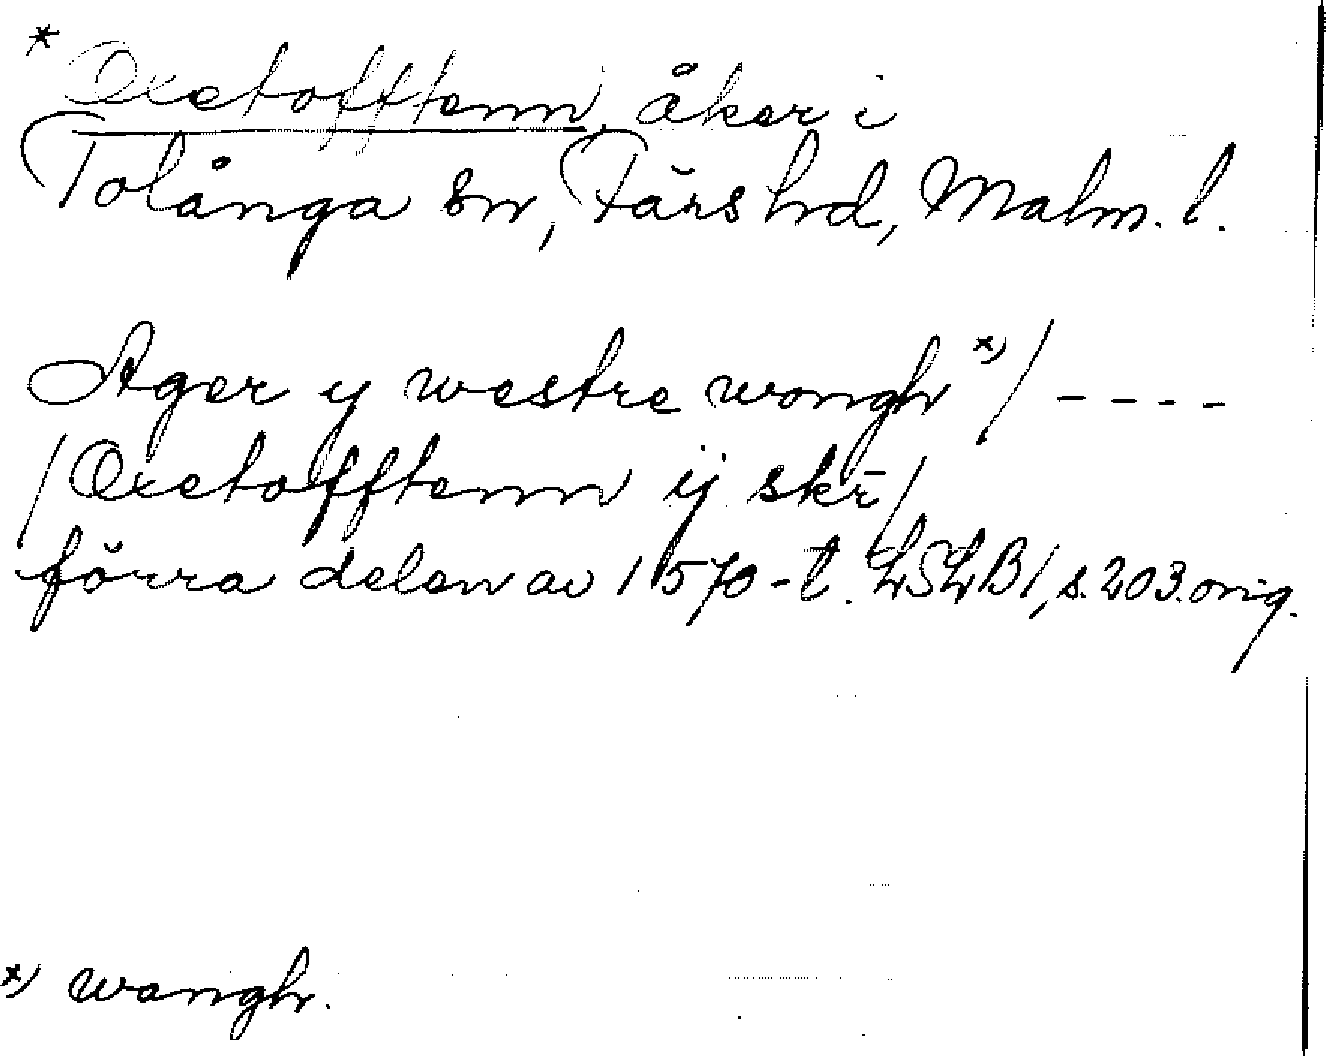 * Oxetofftenn, åker i
Tolånga sn, Färs hd, Malm. l.
Ager y westre wongh *) / - - - -
/ Oxetofftenn ij skr̄ /
förra delen av 1570-t. LSLB 1, s. 203. orig.
*) wangh.